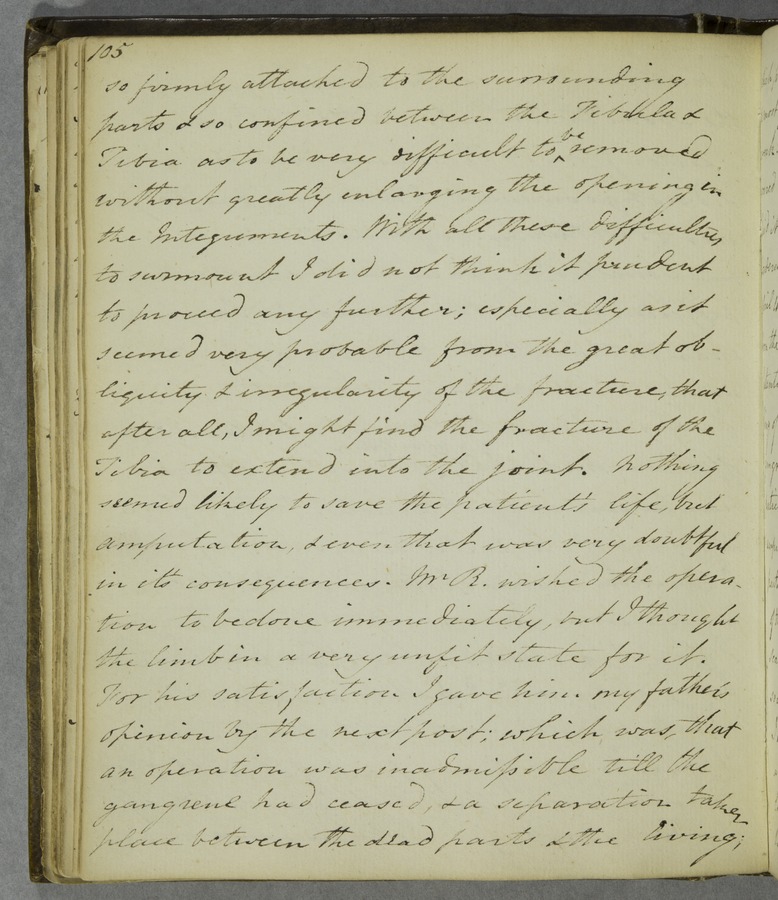 105
so firmly attached to the surrounding
parts & so confined between the Fibula &
Tibia as to be very difficult to be removed
without greatly enlarging the opening in
the Integuments. With all these difficulties
to surmount I did not think it prudent
to proceed any further; especially as it
seemed very probable from the great ob-
liquity & irregularity of the fracture, that
after all, I might find the fracture of the
Tibia to extend into the joint. Nothing
seemed likely to save the patient's life, but
amputation, & even that was very doubtful
in its consequences. Mr R. wished the opera-
tion to be done immediately, but I thought
the limb in a very unfit state for it.
For his satisfaction I gave him my father's
opinion by the next post; which was, that
an operation was inadmissible till the
gangrene had ceased, & a separation taken
place between the dead parts & the living;